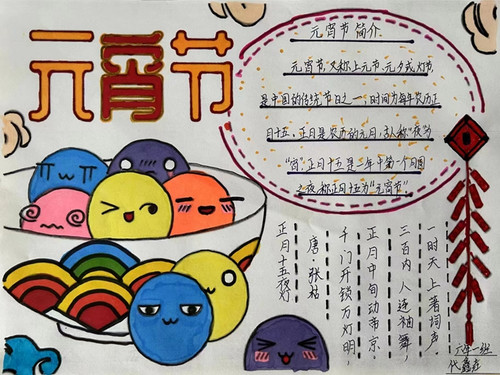 元宵节
元宵节简介
元宵节,又称上元节、元夕或灯节,
是中国的传统节日之一,时间为每年农历正
月十五,正月是农历的元月,古人称"夜"为
"宵",正月十五是一年中第一个月圆
之夜,称正月十五为"元宵节"。
正月十五夜灯
唐·张祜
千门开锁万灯明,
正月中旬动帝京。
三百内人连袖舞,
一时天上著词声。
六年一班